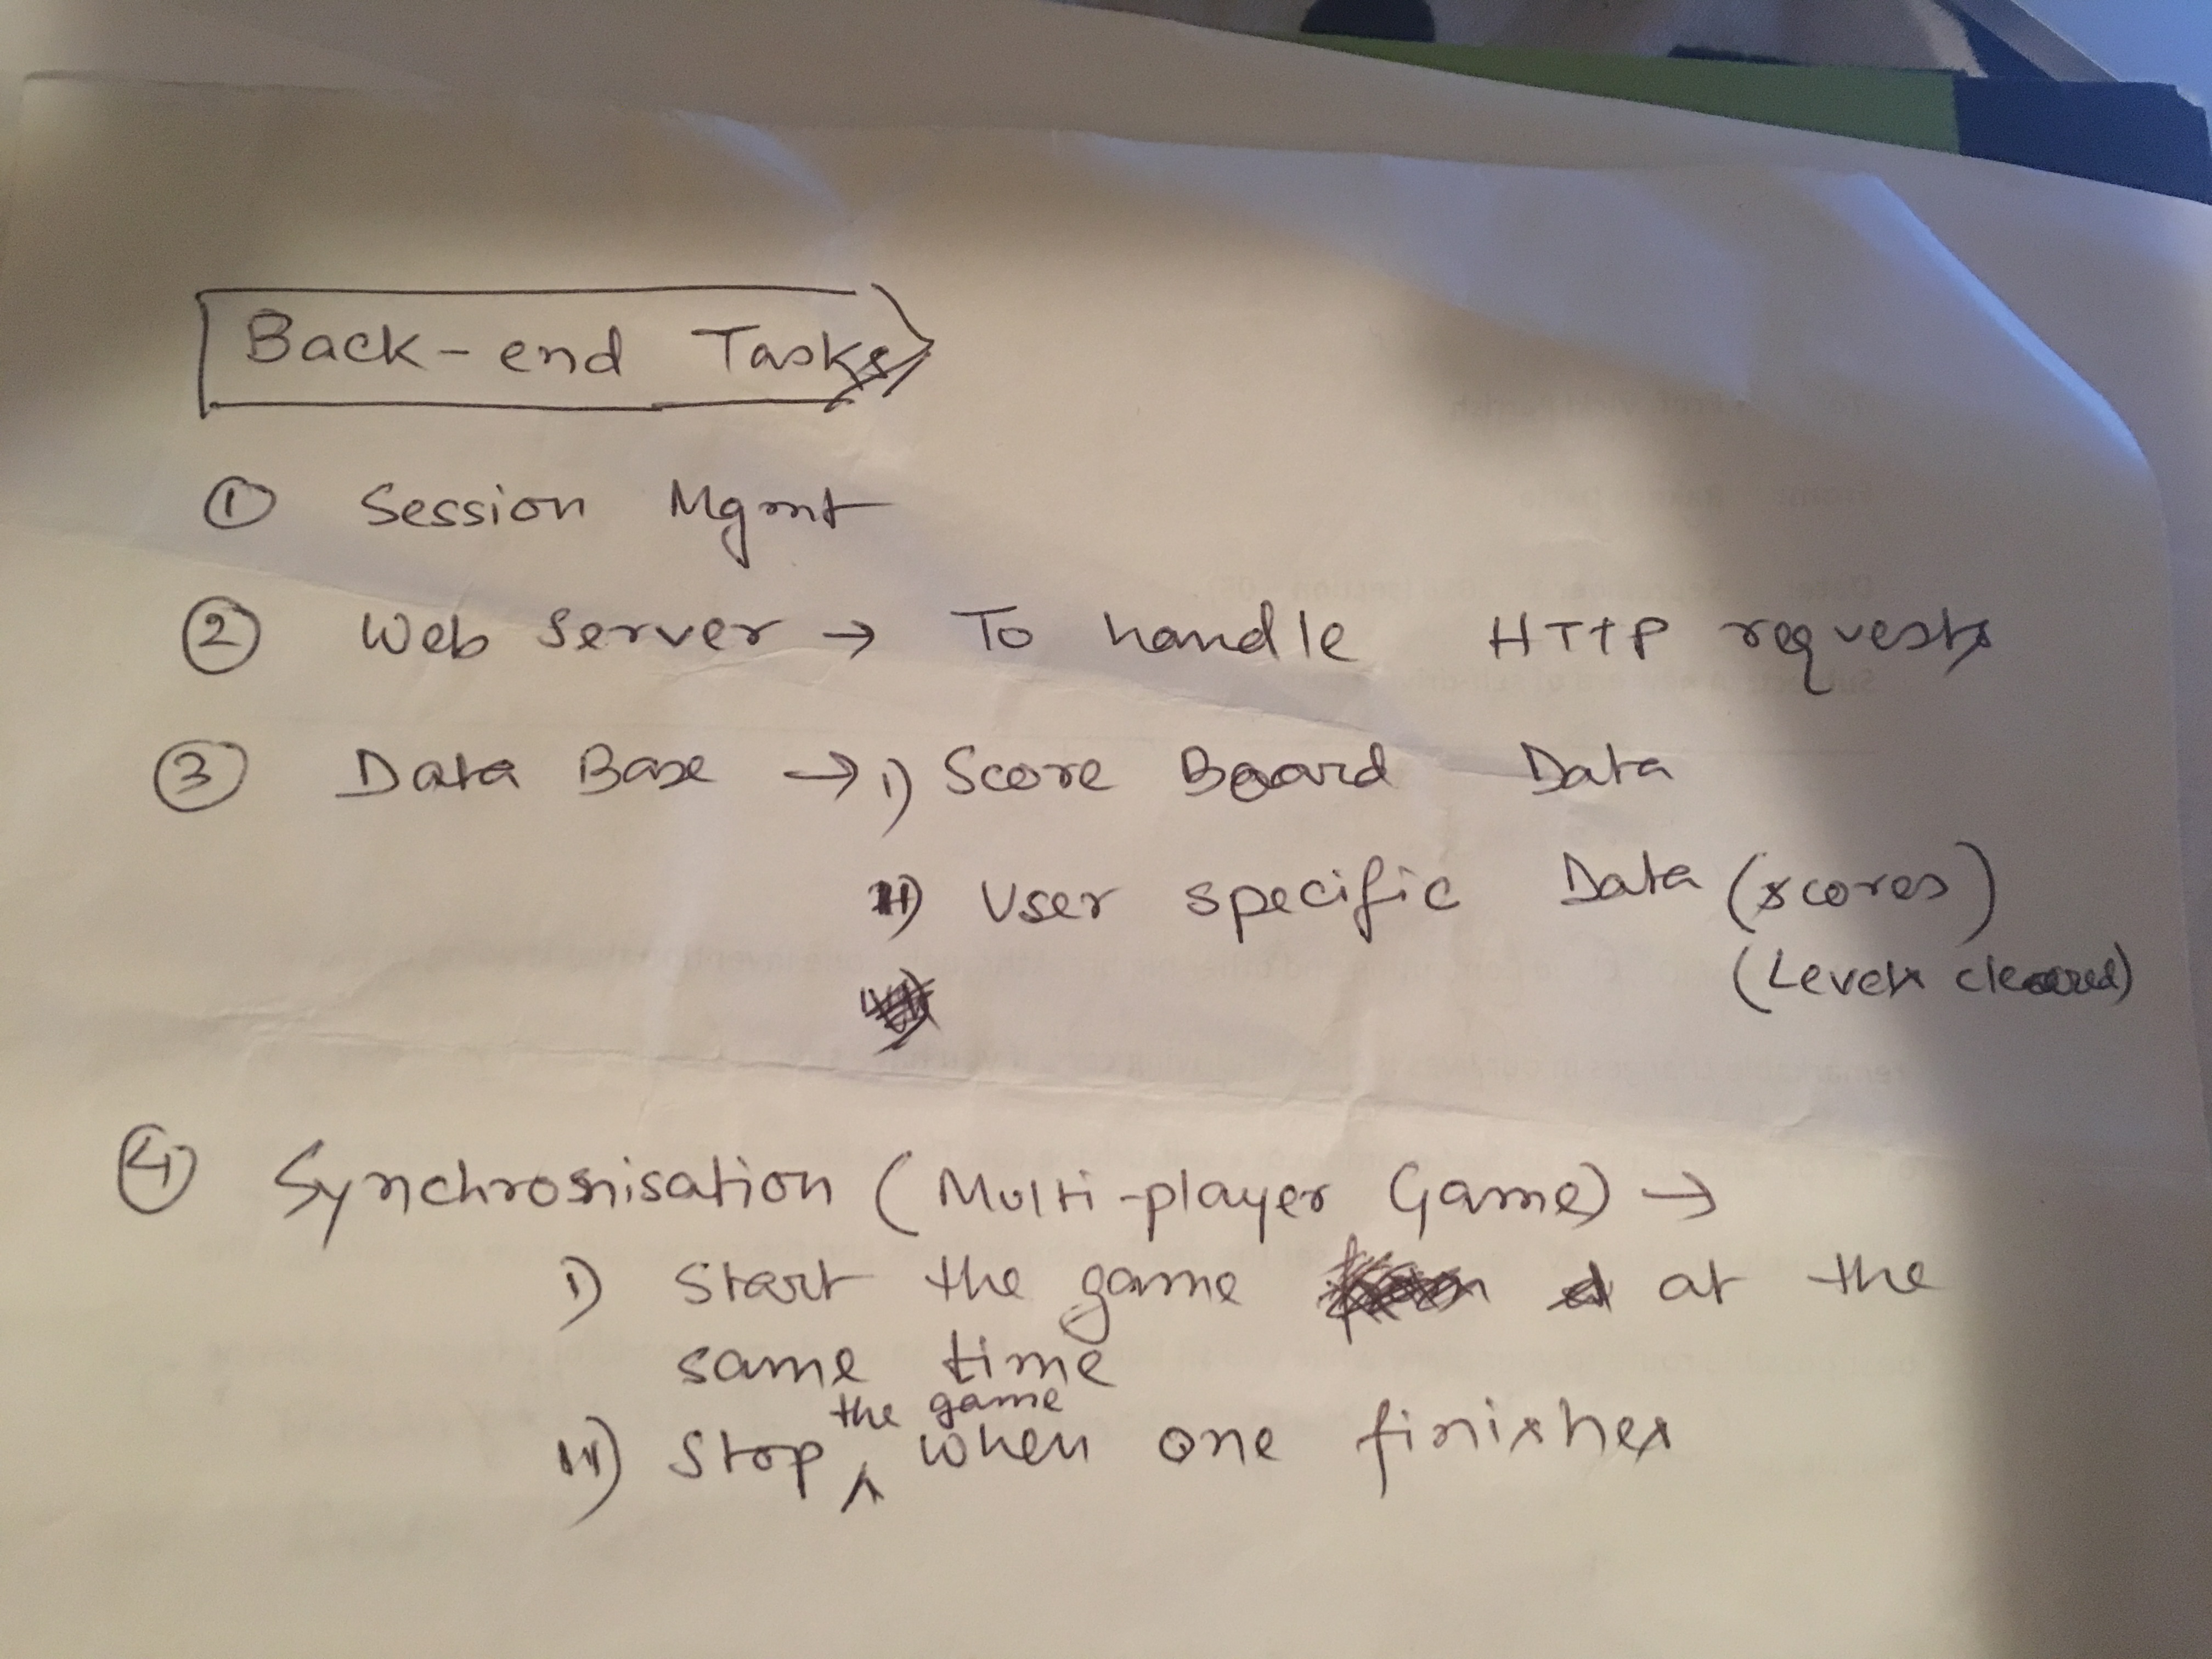 Back-end Tasks
① Session Mgmt
② Web Server → To handle HTTP requests
③ Data Base → i) Score Board Data
ii) User specific Data (scores)
(Levels cleared)
④ Synchronisation (Multi-player Game) →
i) Start the game at the
same time
ii) Stop the game when one finishes